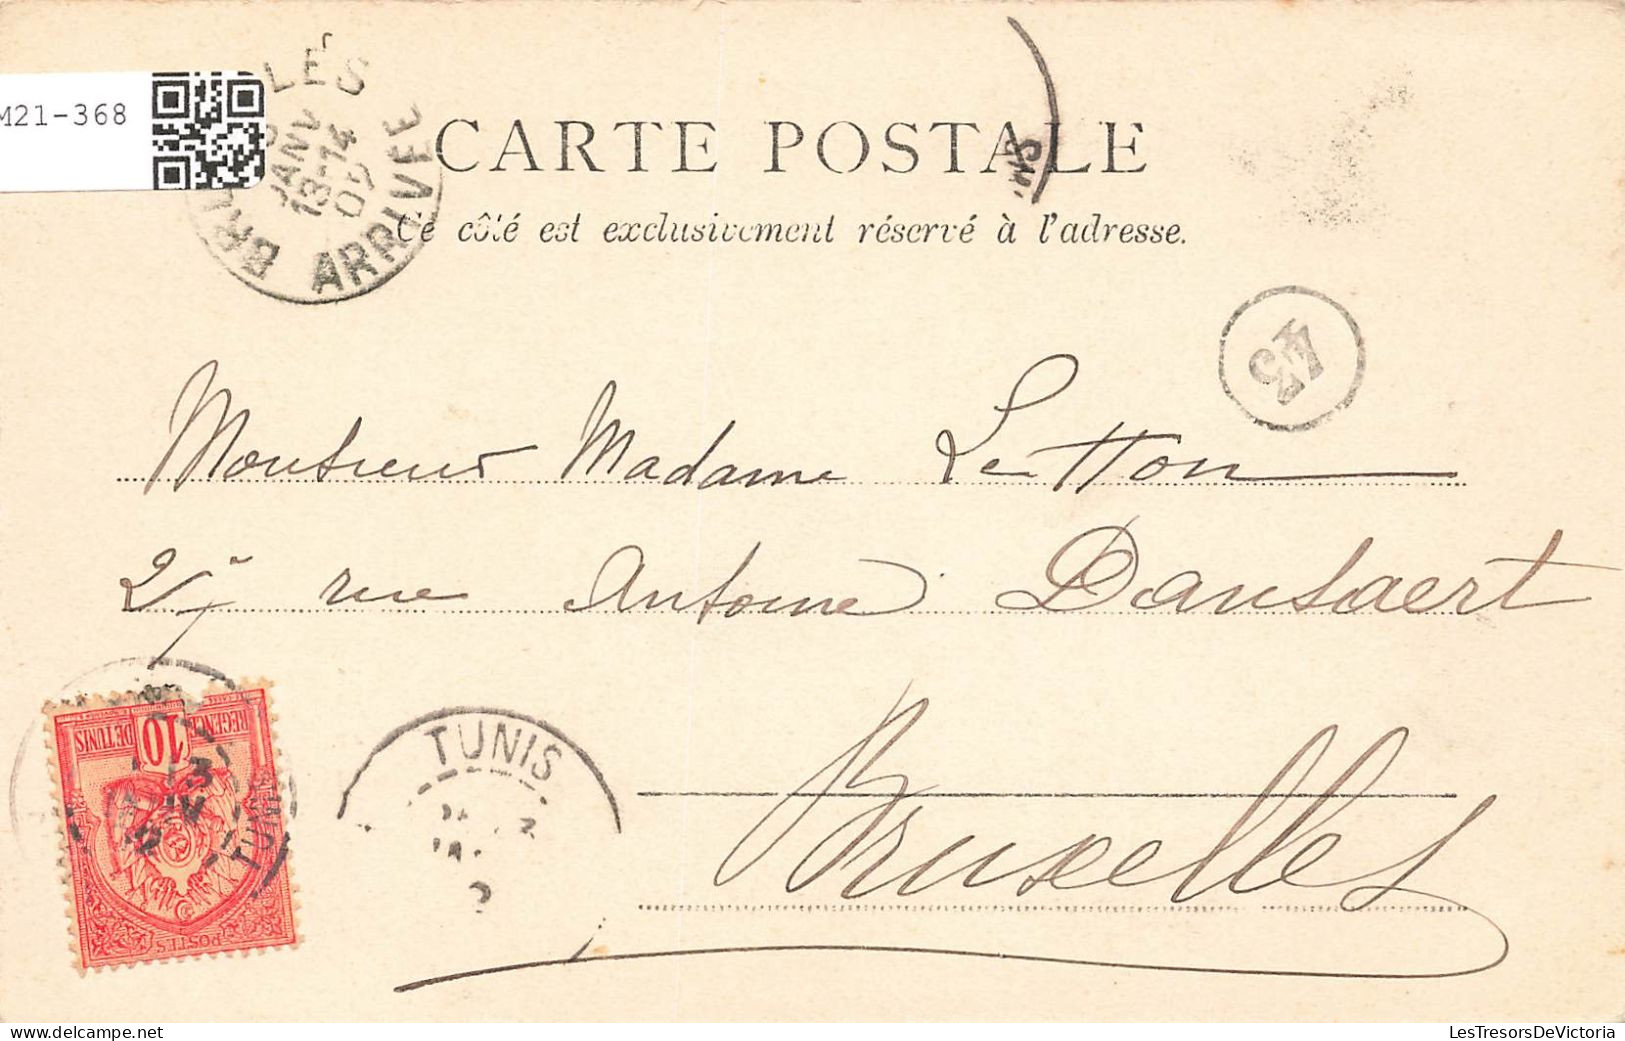 M21-368
BRUXELLES
JANV
13-14
ARRIVÉE
CARTE POSTALE
Ce côté est exclusivement réservé à l'adresse.
43
Monsieur Madame Le Hon
27 rue Antoine Dansaert
Bruxelles
TUNIS
REGENCE DE TUNIS
10
POSTES
TUNIS
LesTresorsDeVictoria